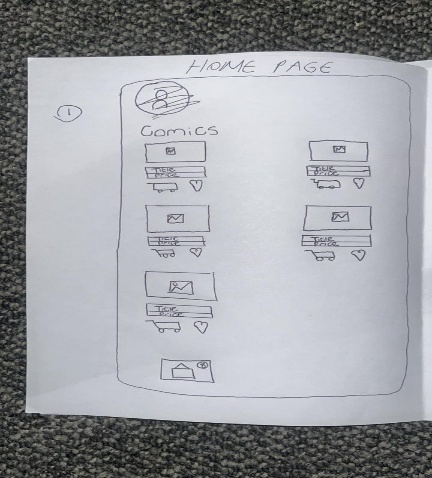 HOME PAGE
1
Comics
TITLE
PRICE
TITLE
PRICE
TITLE
PRICE
TITLE
PRICE
TITLE
PRICE